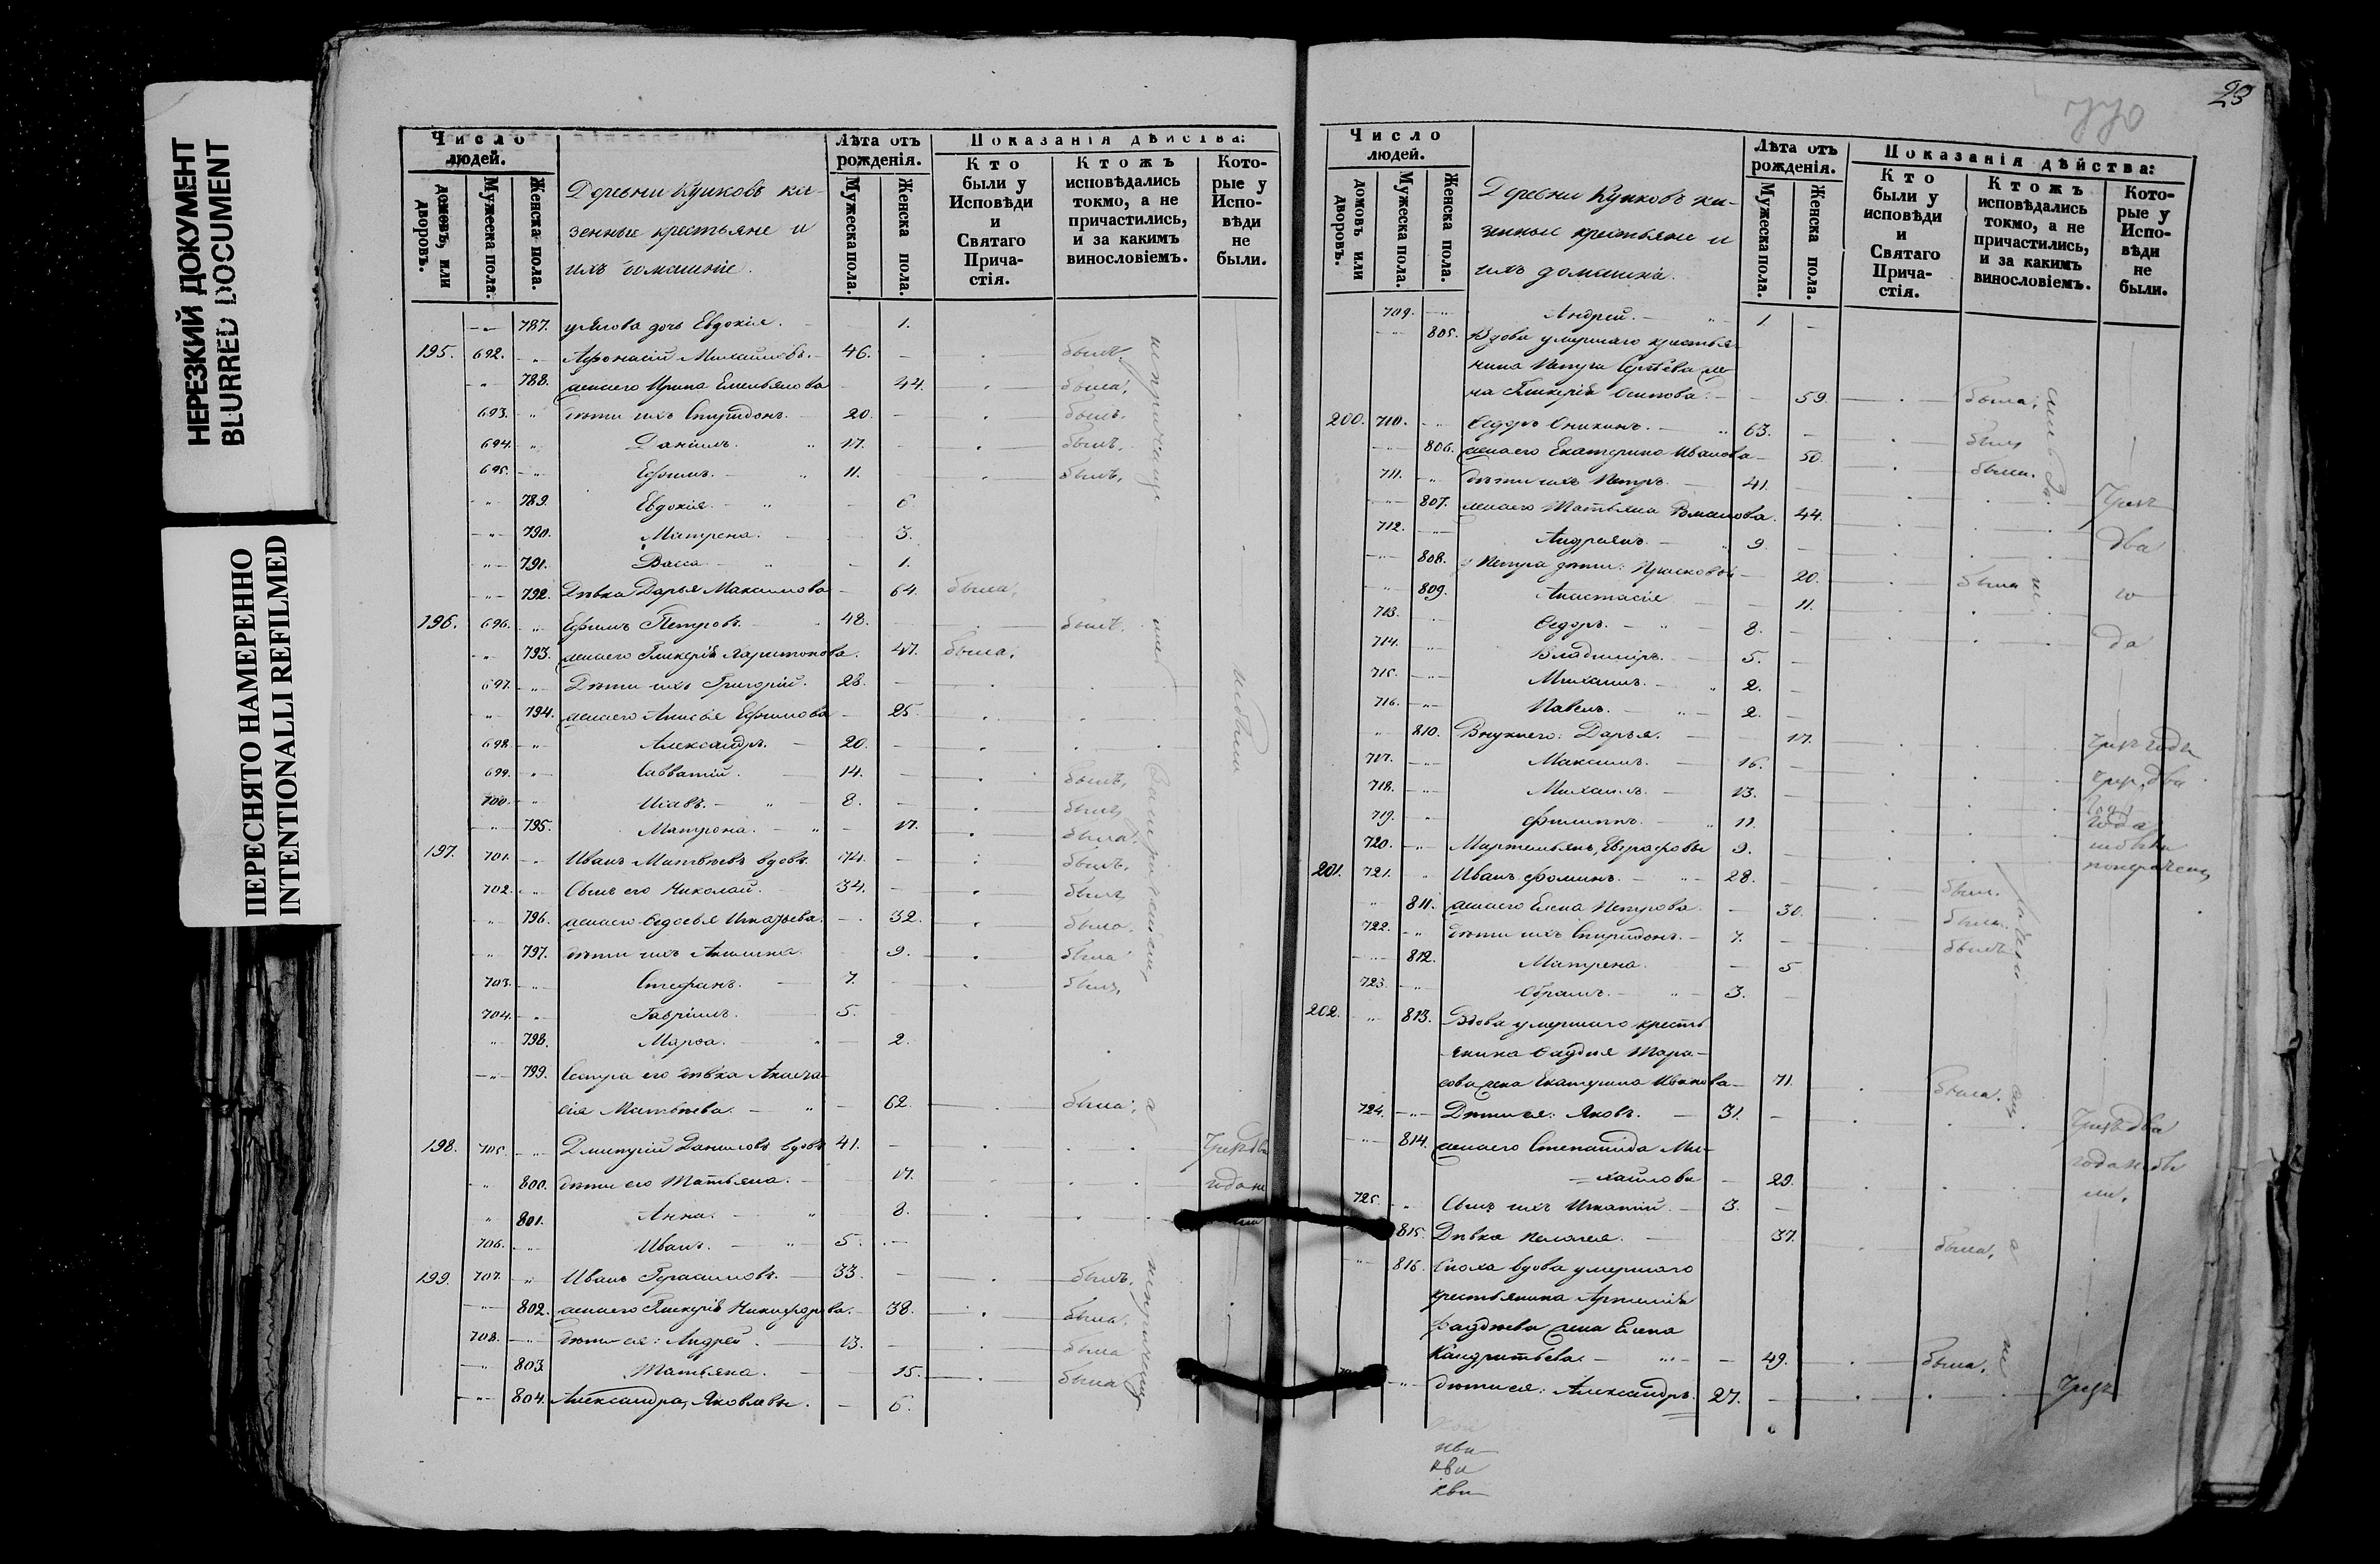 НЕРЕЗКИЙ ДОКУМЕНТ
BLURRED DOCUMENT
ПЕРЕСНЯТО НАМЕРЕННО
INTENTIONALLI REFILMED
Число людей.
домовъ, или дворовъ.
Мужеска пола.
Женска пола.
Деревни Куиковъ ка-
зенные крестьяне и
ихъ домашніе.
Лѣта отъ рожденія.
Мужеска пола.
Женска пола.
Показанія дѣйства:
Кто были у Исповѣди и Святаго Причастія.
Ктожъ исповѣдались токмо, а не причастились, и за какимъ винословіемъ.
Которые у Исповѣди не были.
787. у Якова дочь Евдокія. 1.
195. 692. Афонасій Михайловъ. 46. былъ.
788. жена его Ирина Емельянова 44. была,
693. дѣти ихъ Спиридонъ. 20. былъ.
694. Даніилъ. 17. былъ.
695. Ефимъ. 11. былъ,
789. Евдокія. 6.
790. Матрена. 3.
791. Васса 1.
792. Дѣвка Дарья Максимова 64. была,
196. 696. Ефимъ Петровъ. 48. былъ.
793. жена его Гликерія Харитонова. 47. была.
697. Дѣти ихъ Григорій. 28.
794. жена его Анисія Ефимова 25.
698. Александръ. 20.
699. Савватій. 14. былъ,
700. Исавъ. 8. былъ
795. Матрона. 17. была.
197. 701. Иванъ Матвѣевъ вдовъ. 74. былъ.
702. Сынъ его Николай. 34. былъ
796. жена его Федосья Игнатьева. 32. была.
797. дѣти ихъ Акилина. 9. была
703. Стефанъ. 7. былъ,
704. Гавріилъ. 5.
798. Марѳа. 2.
799. Сестра его дѣвка Анаста-
сія Матвѣева. 62. была.
198. 705. Дмитрій Даниловъ вдовъ 41. Чрезъ два
800. дѣти его Татьяна. 17. года не
801. Анна. 8.
706. Иванъ. 5.
199. 707. Иванъ Герасимовъ. 33. былъ.
802. жена его Гликерія Никифорова. 38. была.
708. дѣти ея: Андрей. 13. была
803. Татьяна. 15. была
804. Александра, Яковлевы. 6.
23
770
Число людей.
домовъ или дворовъ.
Мужеска пола.
Женска пола.
Деревни Куиковъ ка-
зенные крестьяне и
ихъ домашніе.
Лѣта отъ рожденія.
Мужеска пола.
Женска пола.
Показанія дѣйства:
Кто были у исповѣди и Святаго Причастія.
Ктожъ исповѣдались токмо, а не причастились, и за какимъ винословіемъ.
Которые у Исповѣди не были.
709. Андрей. 1.
805. Вдова умершаго крестья-
нина Петра Сергѣева же-
на Гликерія Осипова. 59. была,
200. 710. Ѳедоръ Оникинъ. 63. былъ
806. жена его Екатерина Иванова 50. была.
711. дѣти ихъ Петръ. 41. Чрезъ
807. жена его Татьяна 44.
712. Андреянъ. 9. два
808. у Петра дѣти: Прасковья 20. была
809. Анастасія 11. го
713. Ѳедоръ. 8. да
714. Владиміръ. 5.
715. Михаилъ. 2.
716. Павелъ. 2.
810. Внуки его: Дарья. 17. чрезъ годы
717. Максимъ. 16. чрез два
718. Михаилъ. 13.
719. Филиппъ. 11. года
720. Мартемьянъ, Евграфовы 9. не были
201. 721. Иванъ Фоминъ. 28. былъ.
811. жена его Елена Петрова. 30. была.
722. дѣти ихъ Спиридонъ. 7. былъ
812. Матрена. 5
723. Абрамъ. 3.
202. 813. Вдова умершаго кресть-
янина Фаддея Тара-
сова жена Екатерина Иванова 71. была.
724. Дѣти ея: Яковъ. 31. Чрезъ два
814. жена его Степанида Ми-
хайлова 29. года не бы
725. Сынъ ихъ Игнатій. 3. ли.
815. Дѣвка Пелагея. 37. была,
816. Сноха вдова умершаго
крестьянина Артемія
Фаддеева жена Елена
Кандратьева. 49. была.
дѣти ея: Александръ. 27. Чрезъ